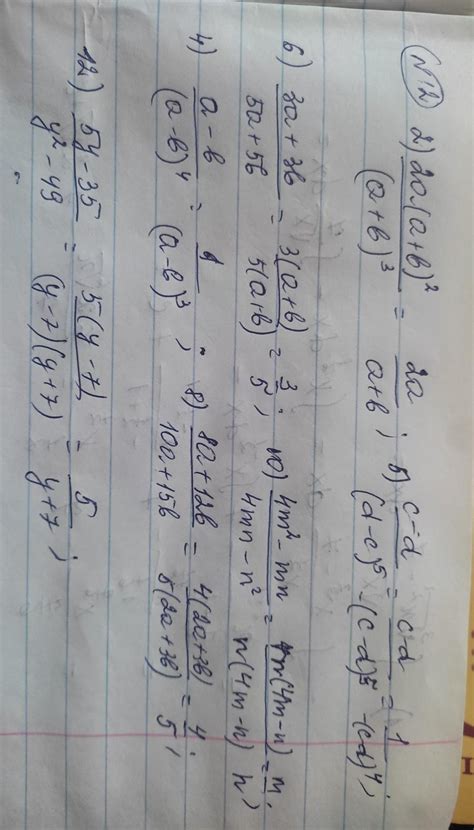 N12 2) 2a·(a+b)²/(a+b)³ = 2a/(a+b); b) (c-d)/(d-c)⁵ = (c-d)/-(c-d)⁵ = 1/-(c-d)⁴;
6) (3a+3b)/(5a+5b) = 3(a+b)/5(a+b) = 3/5; 10) (4m²-mn)/(4mn-n²) = m(4m-n)/n(4m-n) = m/n;
4) (a-b)/(a-b)⁴ = 1/(a-b)³; 8) (8a+12b)/(10a+15b) = 4(2a+3b)/5(2a+3b) = 4/5;
12) (5y-35)/(y²-49) = 5(y-7)/(y-7)(y+7) = 5/(y+7);